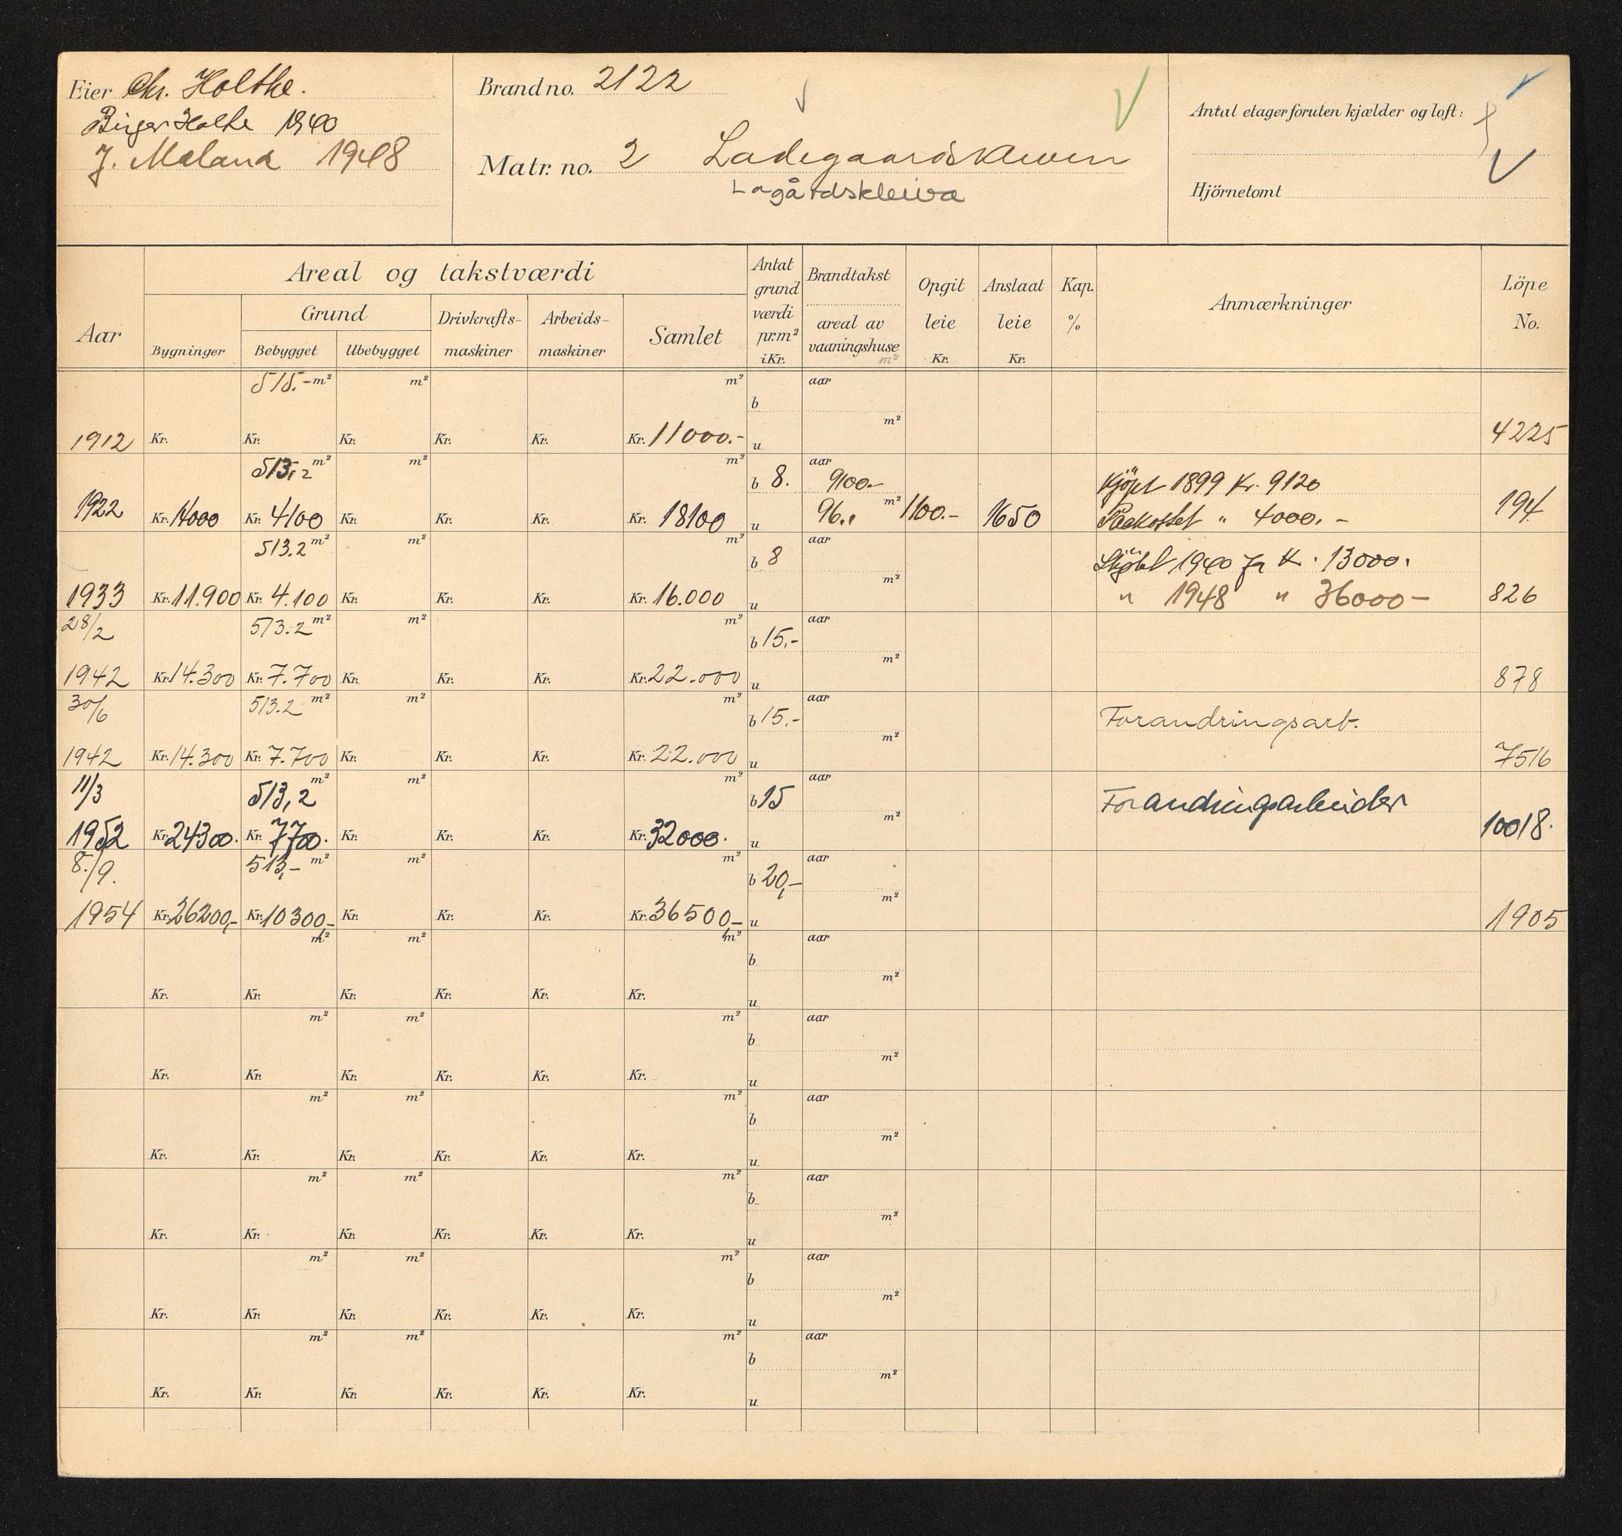 Eier Chr. Holthe.
Birger Holthe 1940
J. Maland 1948
Brand no. 2122
Matr. no. 2 Ladegaardskleven
Lagårdskleiva
Antal etager foruten kjælder og loft:
Hjörnetomt
Aar
Areal og takstværdi
Bygninger
Grund
Bebygget Ubebygget
Drivkrafts-
maskiner
Arbeids-
maskiner
Samlet
Antat
grund
værdi
pr.m²
i Kr.
Brandtakst
areal av
vaaningshuse
m²
Opgit
leie
Kr.
Anslaat
leie
Kr.
Kap.
%
Anmærkninger
Löpe
No.
515.- m² m² m² b aar m²
1912 Kr. Kr. Kr. Kr. Kr. Kr. 11000.- u 4225
513,2 m² m² m² b 8. aar 9100.- Kjöpt 1899 Kr. 9120
1922 Kr. 14000 Kr. 4100 Kr. Kr. Kr. Kr. 18100 u 96.,, m² 1100.- 1650 Paakostet " 4000.- 194
513.2 m² m² m² b 8 aar m² Skjöte 1940 Kr. 13000.
1933 Kr. 11.900 Kr. 4.100 Kr. Kr. Kr. Kr. 16.000 u " 1948 " 36000- 826
28/2 513.2 m² m² m² b 15.- aar m²
1942 Kr. 14.300 Kr. 7.700 Kr. Kr. Kr. Kr. 22.000 u 878
30/6 513.2 m² m² m² b 15.- aar m² Forandringsarb.
1942 Kr. 14.300 Kr. 7.700 Kr. Kr. Kr. Kr. 22.000 u 7516
11/3 513,2 m² m² m² b 15 aar m² Forandringsarbeider
1952 Kr. 24300. Kr. 7700. Kr. Kr. Kr. Kr. 32000. u 10018.
8./9. 513,- m² m² m² b 20,- aar m²
1954 Kr. 26200,- Kr. 10300,- Kr. Kr. Kr. Kr. 36500,- u 1905
m² m² m² b aar m²
Kr. Kr. Kr. Kr. Kr. Kr. u
m² m² m² b aar m²
Kr. Kr. Kr. Kr. Kr. Kr. u
m² m² m² b aar m²
Kr. Kr. Kr. Kr. Kr. Kr. u
m² m² m² b aar m²
Kr. Kr. Kr. Kr. Kr. Kr. u
m² m² m² b aar m²
Kr. Kr. Kr. Kr. Kr. Kr. u
m² m² m² b aar m²
Kr. Kr. Kr. Kr. Kr. Kr. u